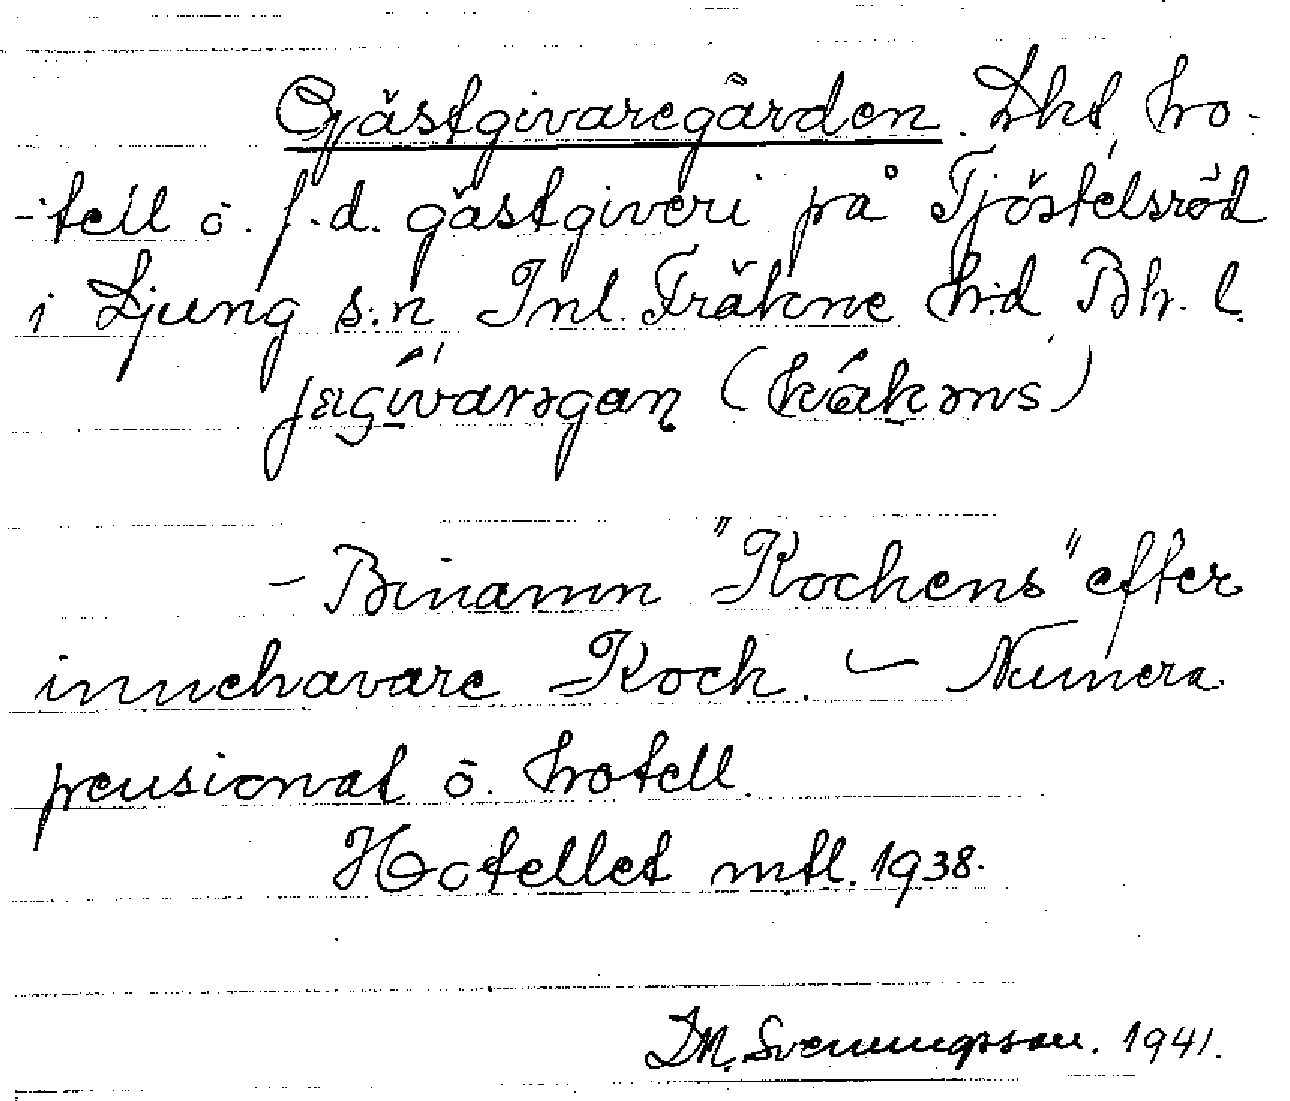 Gästgivaregården. Lht, ho-
-tell o. f.d. gästgiveri på Tjöstelsröd
i Ljung s:n Inl. Fräkne h:d Bh. l.
(kåkəns)
- Binamn "Kockens" efter
innehavare Kock. - Numera
pensionat o. hotell.
Hotellet mtl. 1938.
D.M. Svenningsson. 1941.